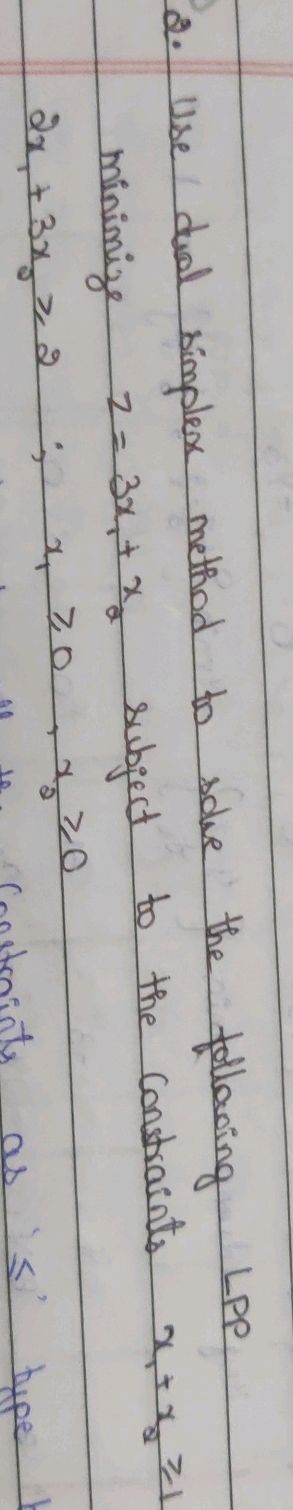 2. Use dual simplex method to solve the following LPP
minimize z = 3x₁ + x₂ subject to the constraints x₁ + x₂ ≥ 1
2x₁ + 3x₂ ≥ 2 ; x₁ ≥ 0 , x₂ ≥ 0
constraints as '≤' type